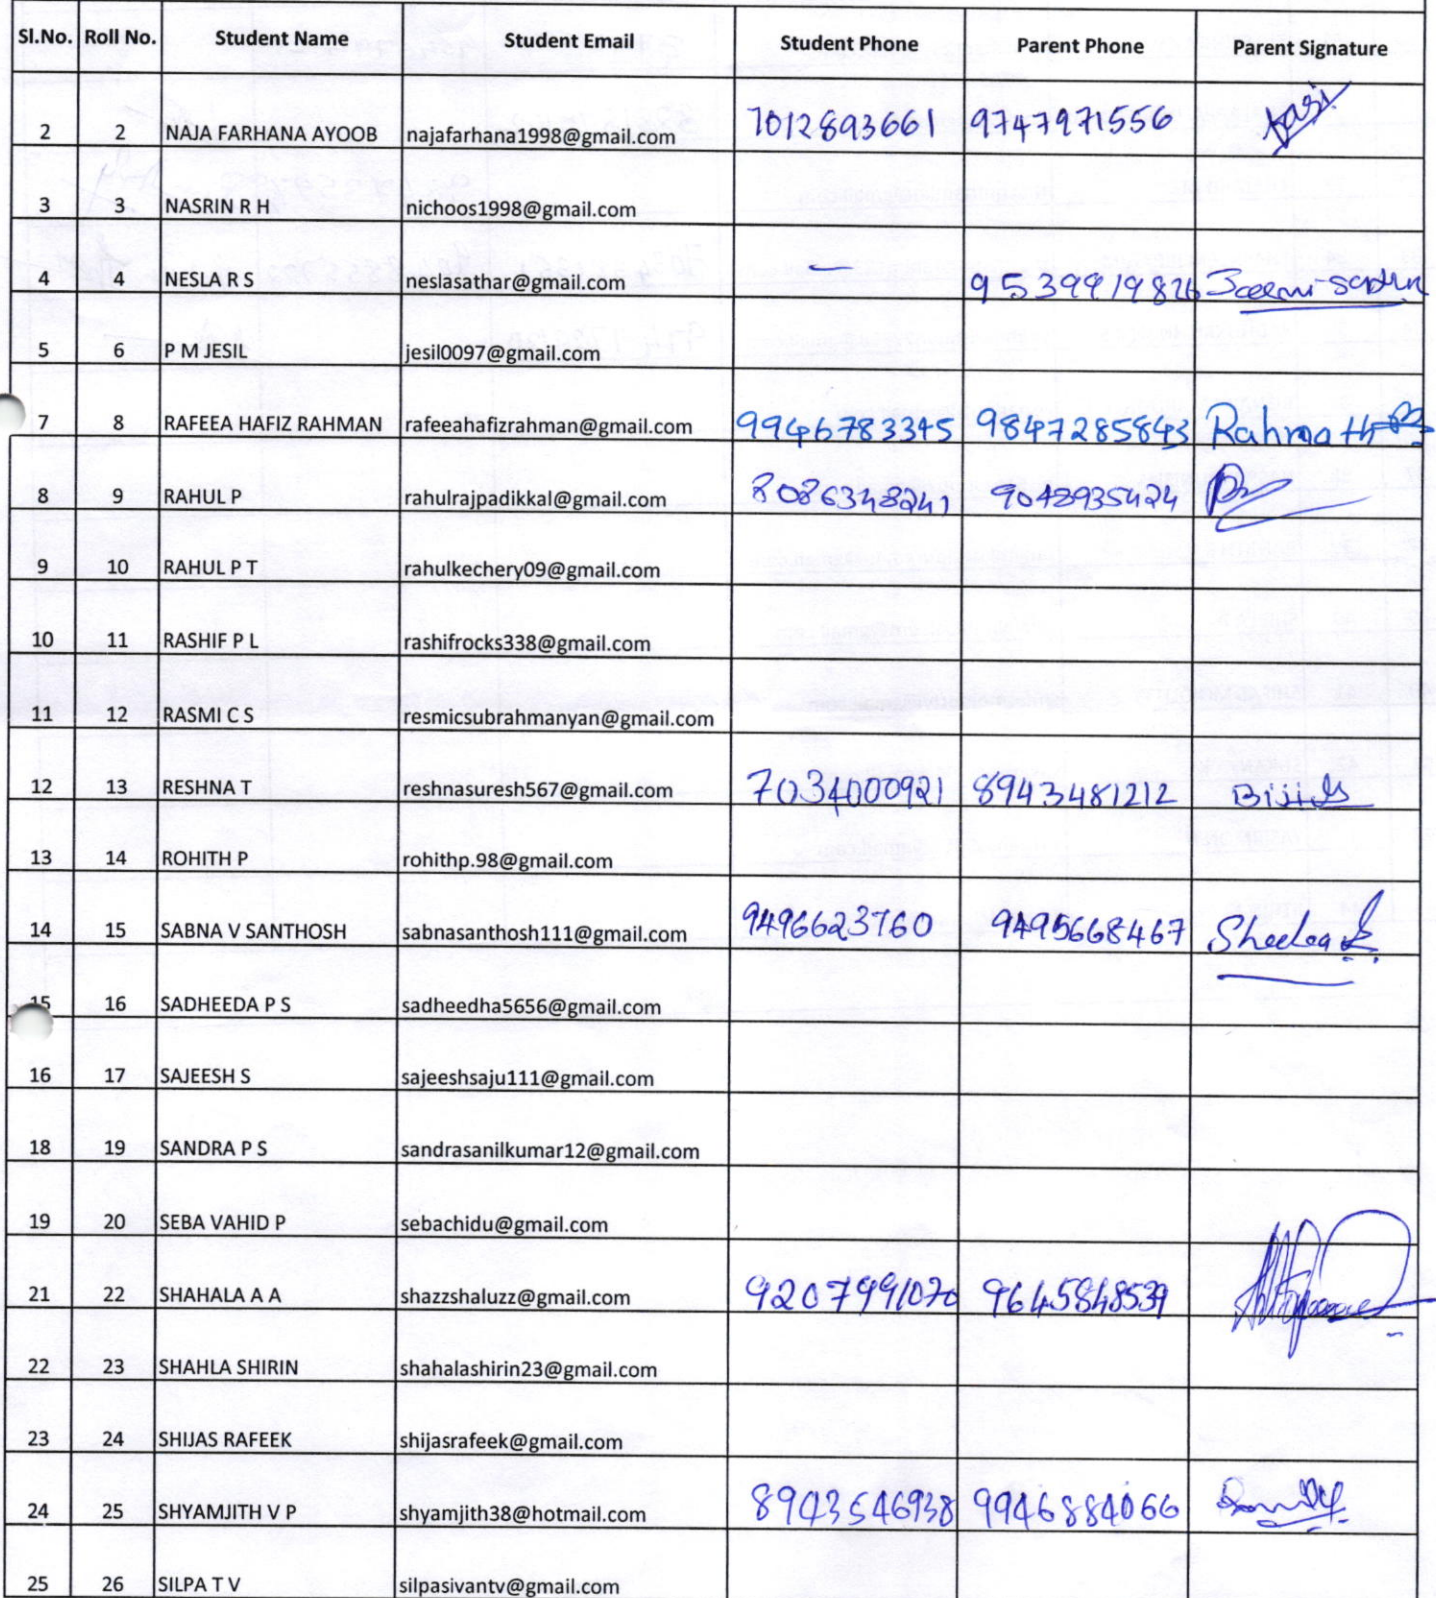 Sl.No. Roll No. Student Name Student Email Student Phone Parent Phone Parent Signature
2 2 NAJA FARHANA AYOOB najafarhana1998@gmail.com 7012893661 9747971556
3 3 NASRIN R H nichoos1998@gmail.com
4 4 NESLA R S neslasathar@gmail.com – 9539919826
5 6 P M JESIL jesil0097@gmail.com
7 8 RAFEEA HAFIZ RAHMAN rafeeahafizrahman@gmail.com 9946783345 9847285843 Rahmath
8 9 RAHUL P rahulrajpadikkal@gmail.com 8086348241 9048935424
9 10 RAHUL P T rahulkechery09@gmail.com
10 11 RASHIF P L rashifrocks338@gmail.com
11 12 RASMI C S resmicsubrahmanyan@gmail.com
12 13 RESHNA T reshnasuresh567@gmail.com 7034000921 8943481212
13 14 ROHITH P rohithp.98@gmail.com
14 15 SABNA V SANTHOSH sabnasanthosh111@gmail.com 9496623760 9495668467 Sheelea
15 16 SADHEEDA P S sadheedha5656@gmail.com
16 17 SAJEESH S sajeeshsaju111@gmail.com
18 19 SANDRA P S sandrasanilkumar12@gmail.com
19 20 SEBA VAHID P sebachidu@gmail.com
21 22 SHAHALA A A shazzshaluzz@gmail.com 9207991070 9645848539
22 23 SHAHLA SHIRIN shahalashirin23@gmail.com
23 24 SHIJAS RAFEEK shijasrafeek@gmail.com
24 25 SHYAMJITH V P shyamjith38@hotmail.com 8943546938 9946884066
25 26 SILPA T V silpasivantv@gmail.com